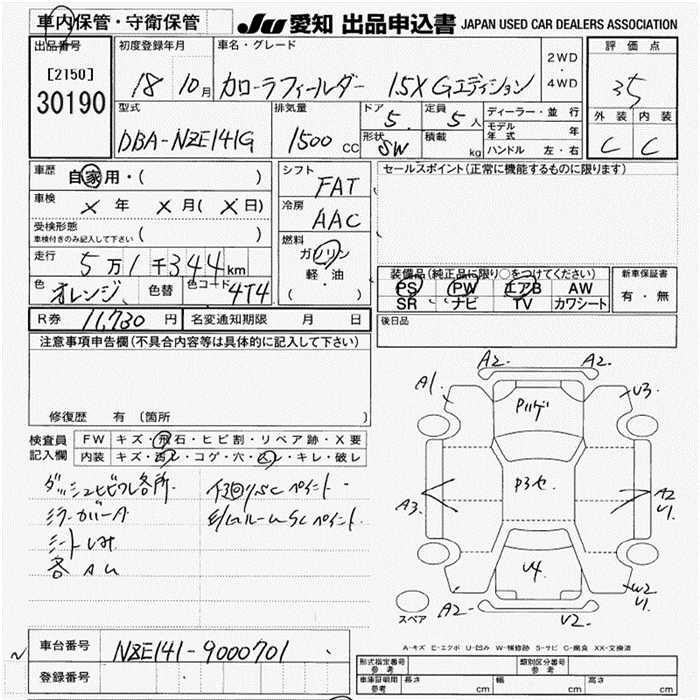 車内保管・守衛保管
JU 愛知 出品申込書 JAPAN USED CAR DEALERS ASSOCIATION
出品番号
[2150]
30190
初度登録年月
18 10月
車名・グレード
カローラフィールダー 1.5X Gエディション
2WD
・
4WD
評価点
35
型式
DBA-NZE141G
排気量
1500 CC
ドア
5
定員
5人
形状
SW
積載
kg
ディーラー・並行
モデル年式 年
ハンドル 左・右
外装 内装
C C
車歴
自家用・( )
車検
X 年 X 月( X 日)
受検形態
車検付きのみ記入して下さい ( )
走行
5万1千344km
色
オレンジ
色替
色コード
4T4
シフト
FAT
冷房
AAC
燃料
ガソリン
軽・油
( )
セールスポイント(正常に機能するものに限ります)
装備品(純正品に限り○をつけてください)
PS PW エアB AW
SR ナビ TV カワシート
新車保証書
有・無
R券 11,730 円
名変通知期限 月 日
後日品
注意事項申告欄(不具合内容等は具体的に記入して下さい)
修復歴 有 (箇所 )
検査員
記入欄
FW キズ・飛石・ヒビ割・リペア跡・X要
内装 キズ・汚レ・コゲ・穴・スレ・キレ・破レ
ダッシュヒビワレ各所
ミラーカバーA
各AU
A2 A2
A1
U3
P3セ
A3
A2
U1
U4
W2
U1
A2
U2
スペア
A-キズ E-エクボ U-凹み W-補修跡 S-サビ C-腐食 XX-交換済
車台番号 NZE141-9000701
登録番号
形式指定番号
参考
類別区分番号
参考
車庫証明用
参考
長さ cm 幅 cm 高さ cm